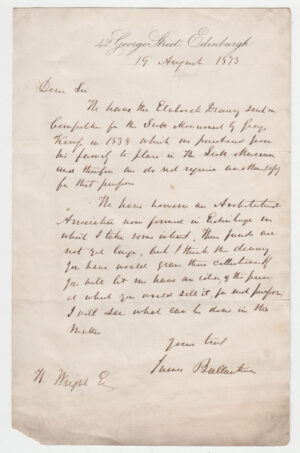 42 George Street, Edinburgh
19 August 1873
Dear Sir
We have the Elaborate Drawing sent in
Competition for the Scott Monument by George
Kemp in 1838 which we purchased from
his family to place in the Scott Museum
and therefore we do not require another copy
for that purpose
We have however an Architectural
Association now formed in Edinburgh in
which I take some interest. Their funds are
not yet large, but I think the drawing
you have would grace their collection. If
you will let me have an idea of the price
at which you would sell it for such purpose
I will see what can be done in the
matter
Yours truly
James Ballantine
W. Wright Esq